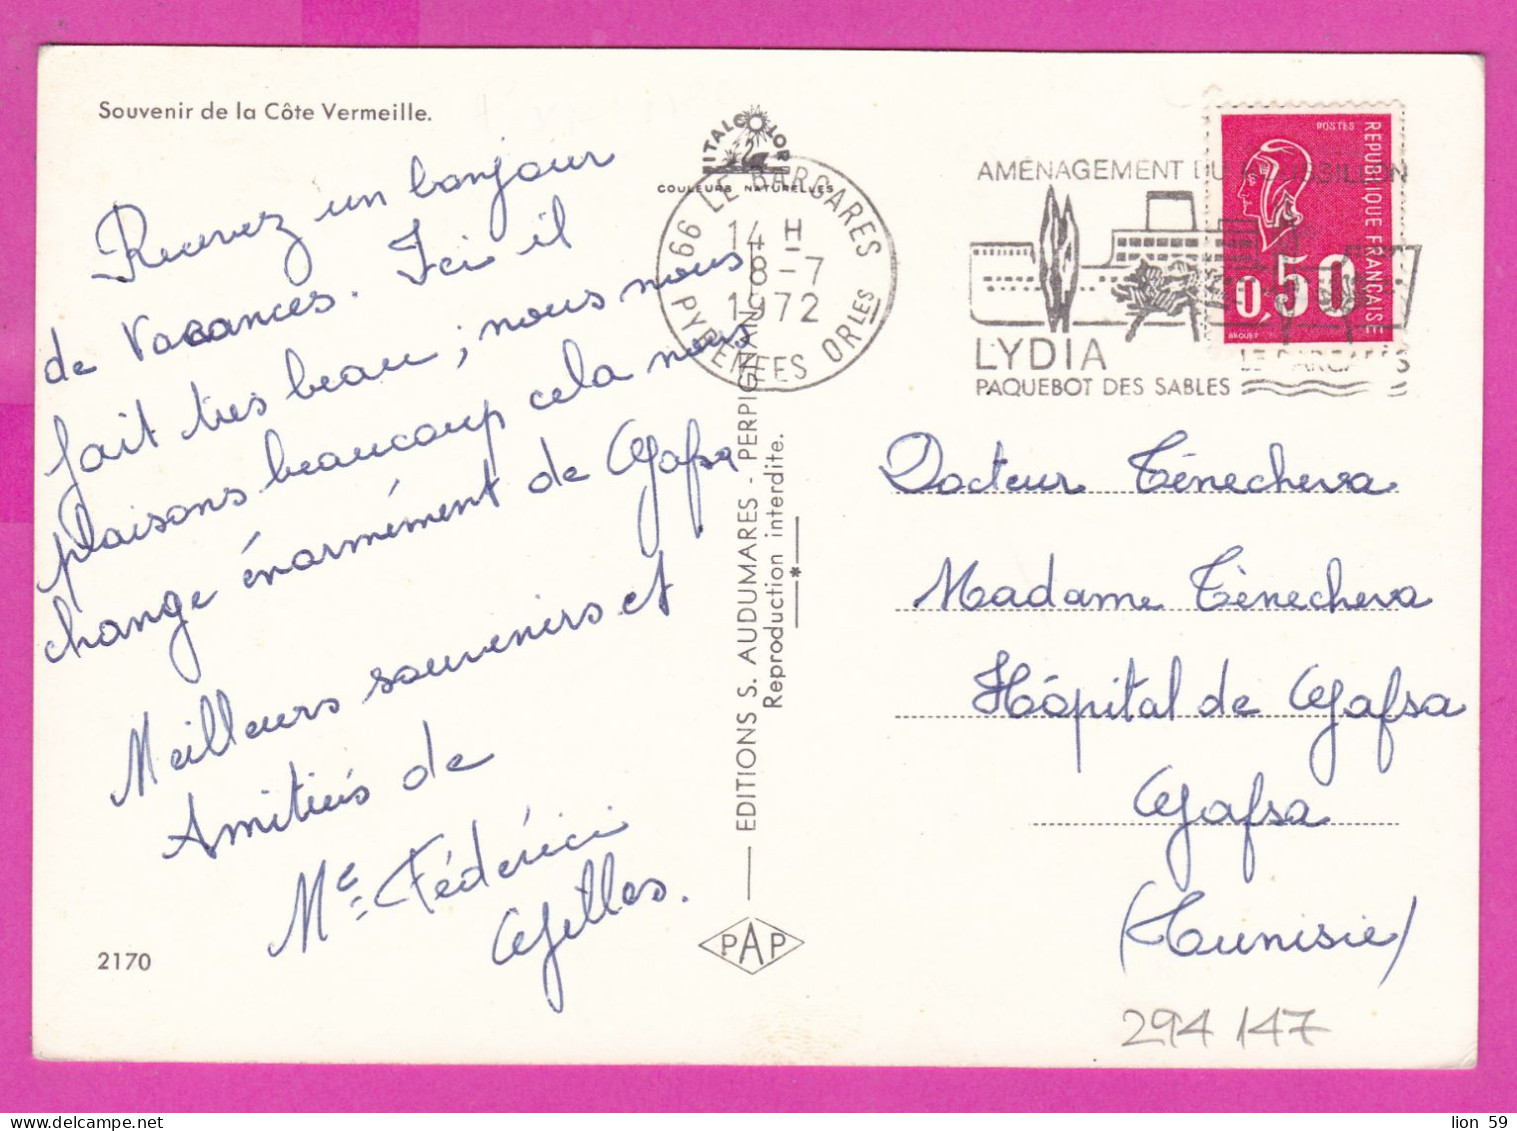 Souvenir de la Côte Vermeille.
Recevez un bonjour
de Vacances. Ici il
fait très beau, nous nous
plaisons beaucoup cela nous
change énormément de Gafsa
Meilleurs souvenirs et
Amitiés de
Me Fédérici
Gilles.
2170
ITALCOLOR
COULEURS NATURELLES
66 LE BARCARES
14 H
8-7
1972
PYRENEES ORLES
EDITIONS S. AUDUMARES - PERPIGNAN
Reproduction interdite.
PAP
AMÉNAGEMENT DU ROUSSILLON
LYDIA
PAQUEBOT DES SABLES
LE BARCARÈS
POSTES
REPUBLIQUE FRANÇAISE
0,50
BEQUET
Docteur Ténecheva
Madame Ténecheva
Hôpital de Gafsa
Gafsa
(Tunisie)
294147
lion 59